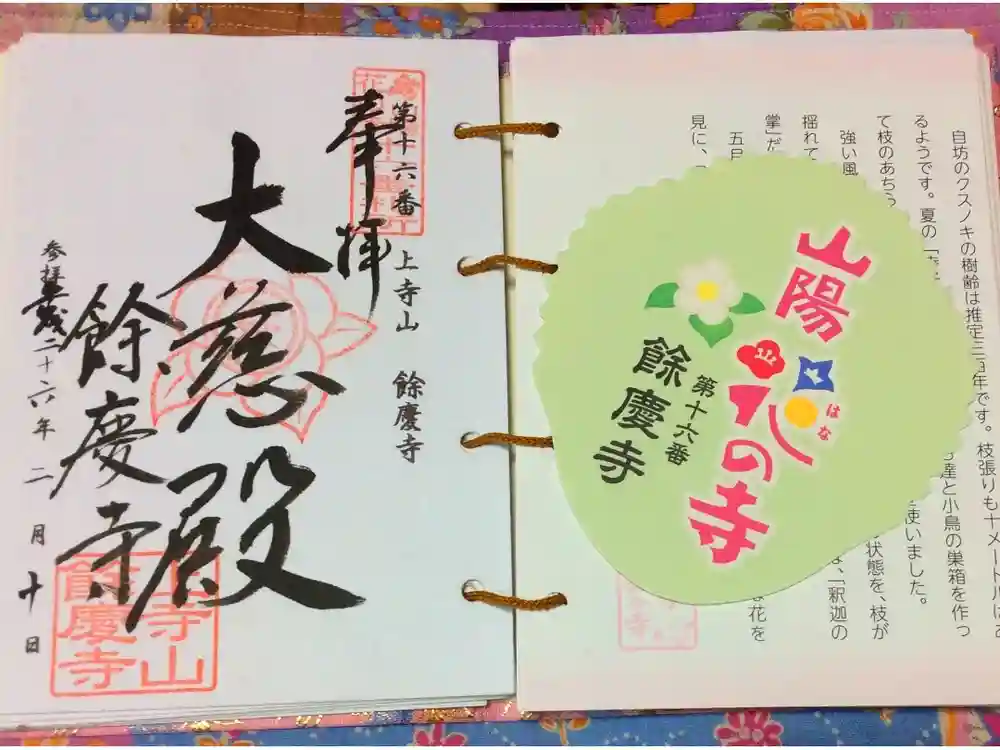 奉拝
第十六番 上寺山 餘慶寺
大慈殿
餘慶寺
参拝
二十六年 二月 十日
上寺山
餘慶寺
自坊のクスノキの樹齢は推定三百年です。枝張りも十メートル
るようです。夏の
達と小鳥の巣箱を作っ
て枝のあちら
使いました。
強い風
状態を、枝が
揺れて
、「釈迦の
掌」だ
花を
見に、「
山陽
花の寺
はな
山
第十六番
餘慶寺